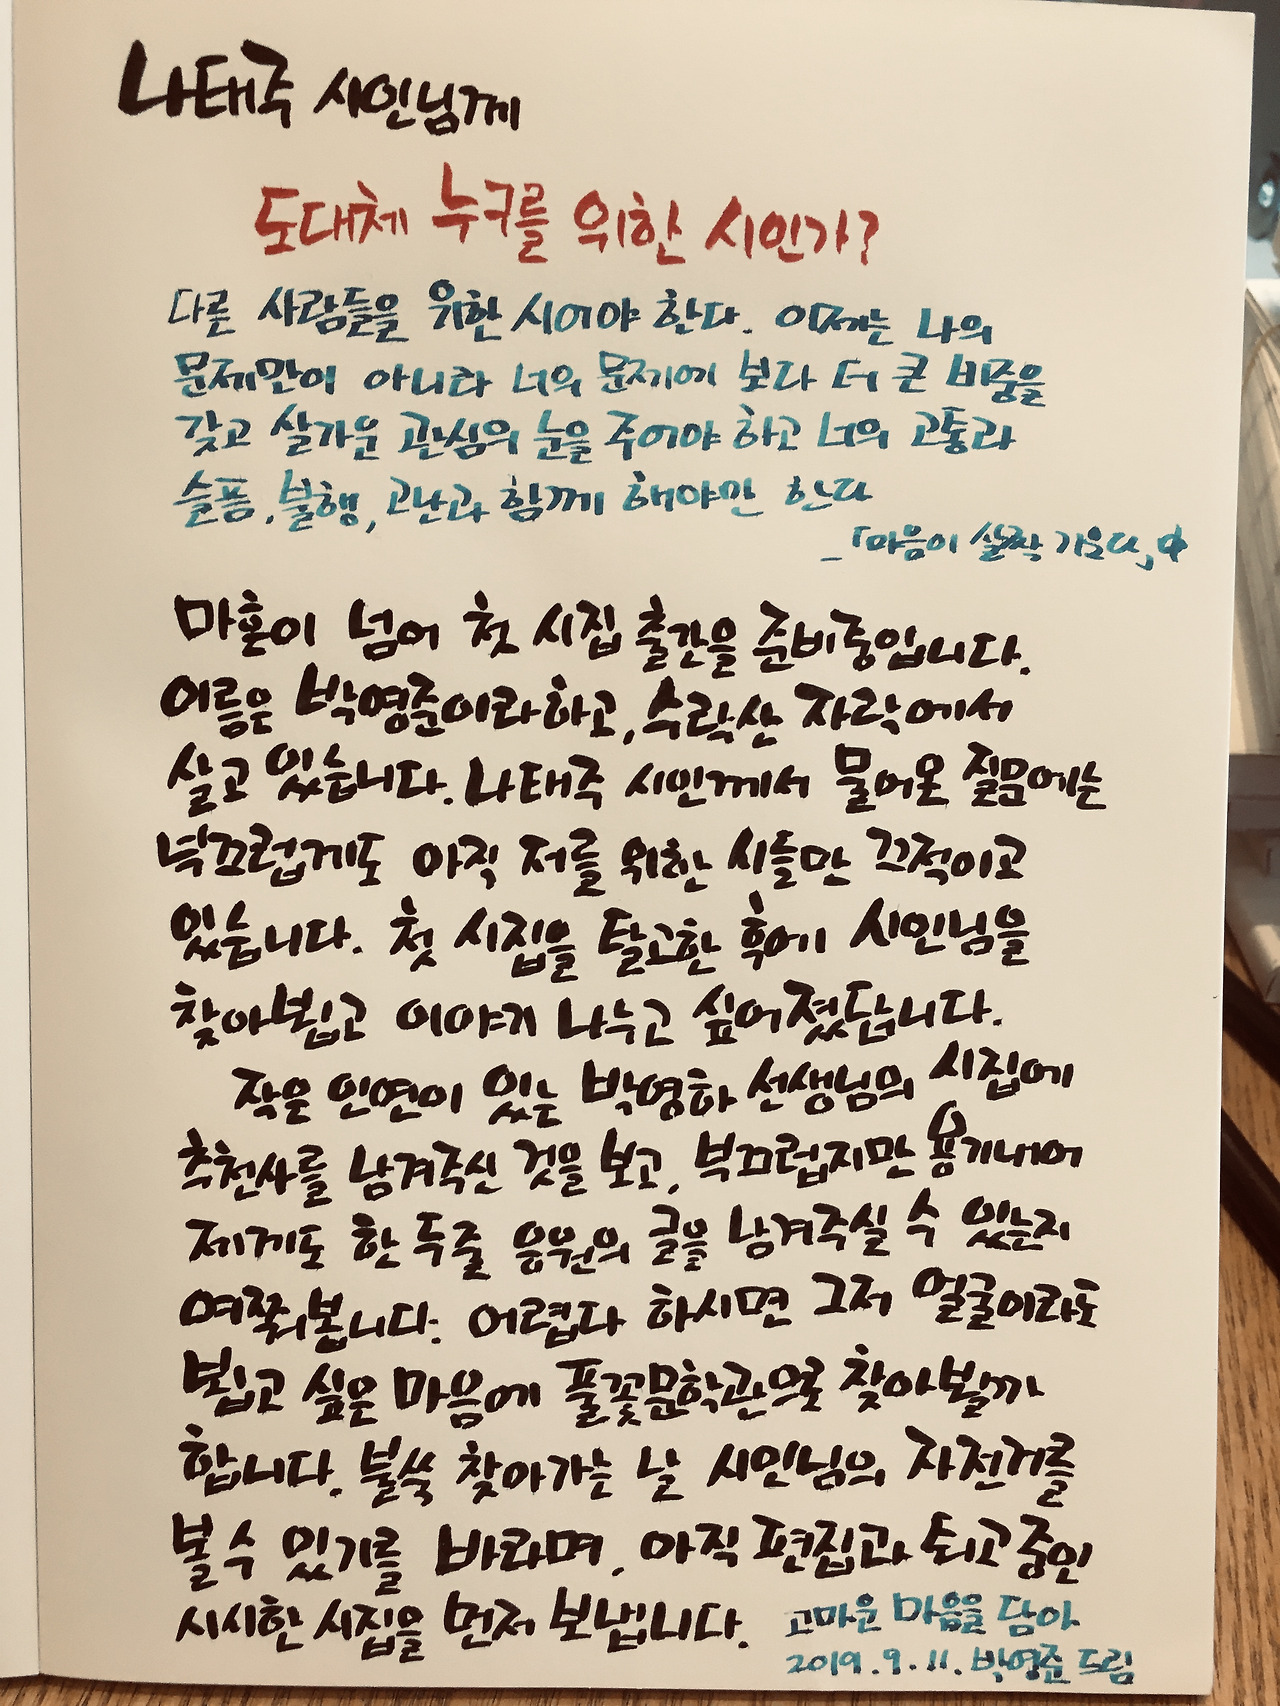 나태주 시인님께
도대체 누구를 위한 시인가?
다른 사람들을 위한 시어야 한다. 이제는 나의
문제만이 아니라 너의 문제에 보다 더 큰 비중을
갖고 살가운 관심의 눈을 주어야 하고 너의 고통과
슬픔, 불행, 고난과 함께 해야만 한다
_「마음이 살짝 기운다」中
마흔이 넘어 첫 시집 출간을 준비중입니다.
이름은 박영준이라하고, 수락산 자락에서
살고 있습니다. 나태주 시인께서 물어온 질문에는
부끄럽게도 아직 저를 위한 시들만 끄적이고
있습니다. 첫 시집을 탈고한 후에 시인님을
찾아뵙고 이야기 나누고 싶어졌답니다.
작은 인연이 있는 박영하 선생님의 시집에
추천사를 남겨주신 것을 보고, 부끄럽지만 용기내어
제게도 한 두줄 응원의 글을 남겨주실 수 있는지
여쭤봅니다. 어렵다 하시면 그저 얼굴이라도
뵙고 싶은 마음에 풀꽃문학관으로 찾아뵐까
합니다. 불쑥 찾아가는 날 시인님의 자전거를
볼 수 있기를 바라며, 아직 편집과 퇴고중인
시시한 시집을 먼저 보냅니다.
고마운 마음을 담아
2019.9.11. 박영준 드림